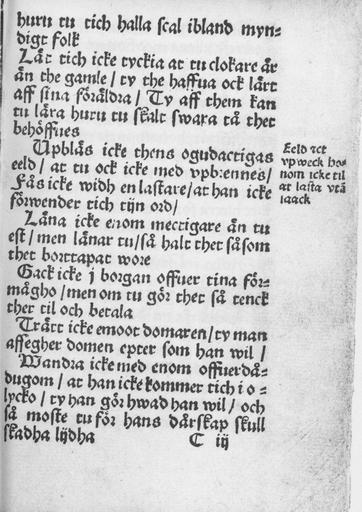 huru tu tich halla scal ibland myn=
digt folk
Låt tich icke tyckia at tu clokare är
än the gamle / ty the haffua ock lärt
aff sina föräldra / Ty aff them kan
tu lära huru tu skalt swara tå thet
behöffues
Upblås icke thens ogudactigas
eeld / at tu ock icke med vpbrennes /
Fäs icke widh en lastare / at han icke
förwender tich tijn ord /
Låna icke enom mectigare än tu
est / men lånar tu / så halt thet såsom
thet borttapat wore
Gack icke j borgan offuer tina för=
mågho / men om tu gör thet så tenck
ther til och betala
Trätt icke emoot domaren / ty man
affegher domen epter som han wil /
Wandra icke med enom offuerdå=
dugom / at han icke kommer tich i o=
lycko / ty han gör hwad han wil / och
så moste tu för hans dårskap skull
skadha lijdha
C iij
Eeld zct
vpweck ho=
nom icke til
at lasta vtå
iaack